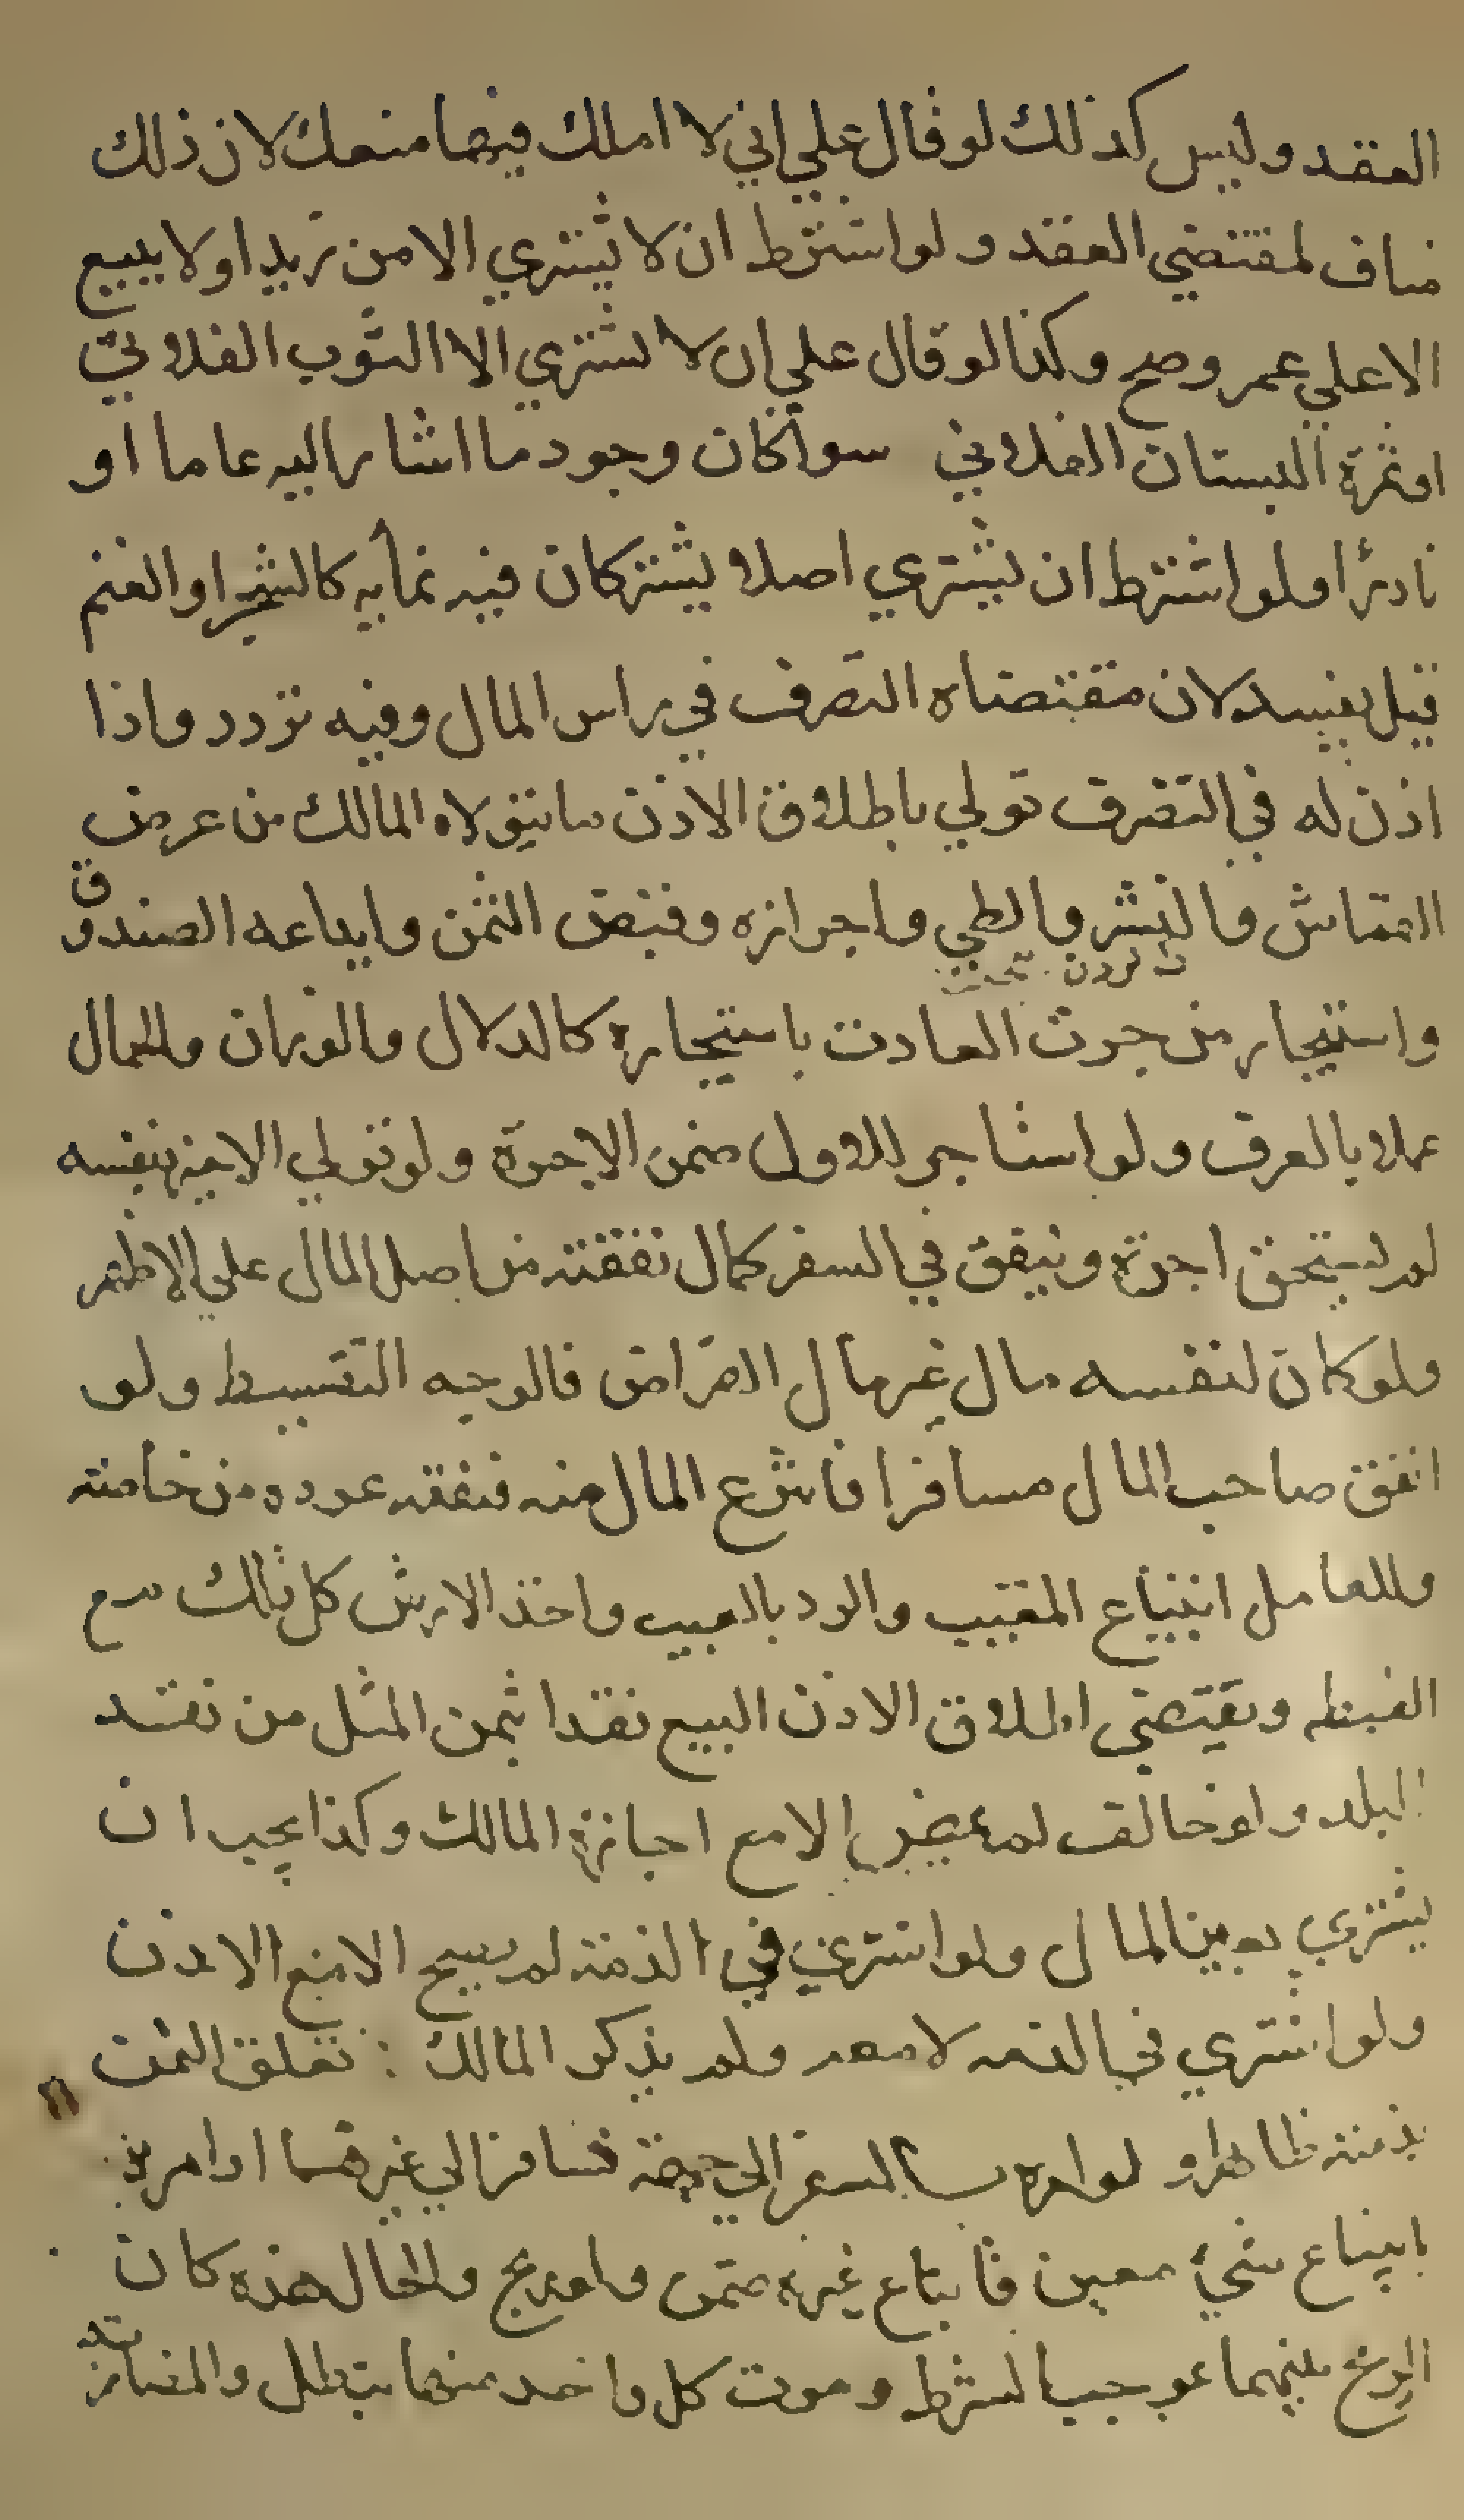 العقد وليس كذلك لو قال علي اني لا املك فيهما منعك لان ذلك
مناف لمقتضي العقد ولو اشترط ان لا يشتري الا من زيد او لا يبيع
الا علي عمرو صح وكذا لو قال علي ان لا يشتري الا الثوب الفلاني
او ثمرة البستان الفلاني سوآ كان وجود ما اشار اليه عاما او
نادرا ولو اشترط ان يشتري اصلا يشتركان فيه نمآيه كالشجر او الغنم
قيل يفسد لان مقتضاه التصرف في راس المال وفيه تردد واذا
اذن له في التصرف تولي باطلاق الاذن ما يتولاه المالك من عرض
القماش والنشر والطي واحرازه وقبض الثمن وايداعه الصندوق
واستيجار من جرت العادت باستيجاره كالدلال والوزان والحمال
عملا بالعرف ولو استاجر للاول ضمن الاجرة ولو تولي الاخير بنفسه
لم يستحق اجرة وينفق في السفر كمال نفقته من اصل المال علي الاظهر
ولو كان لنفسه مال غير مال القراض فالوجه التقسيط ولو
انفق صاحب المال مسافرا فانتزع المال منه فنفقته عوده من خاصته
وللعامل ابتياع المعيب والرد بالعيب واخذ الارش كل ذلك مع
الغبطه ويقتضي اطلاق الاذن البيع نقدا بثمن المثل من نقد
البلد ولو خالف لم يمض الا مع اجازة المالك وكذا يجب ان
يشتري بعين المال ولو اشتري في الذمة لم يصح الا مع الاذن
ولو اشتري في الذمه لا معه ولم يذكر المالك : تعلق الثمن
بذمته ظاهرا و لو امره بالسفر الي جهة فسافر الي غيرها او امره
بابتياع شيء معين فابتاع غيره ضمن ولو ربح والحال هذه كان
الربح بينهما بموجب الشرط وموت كل واحد منهما يبطل والمضاربة